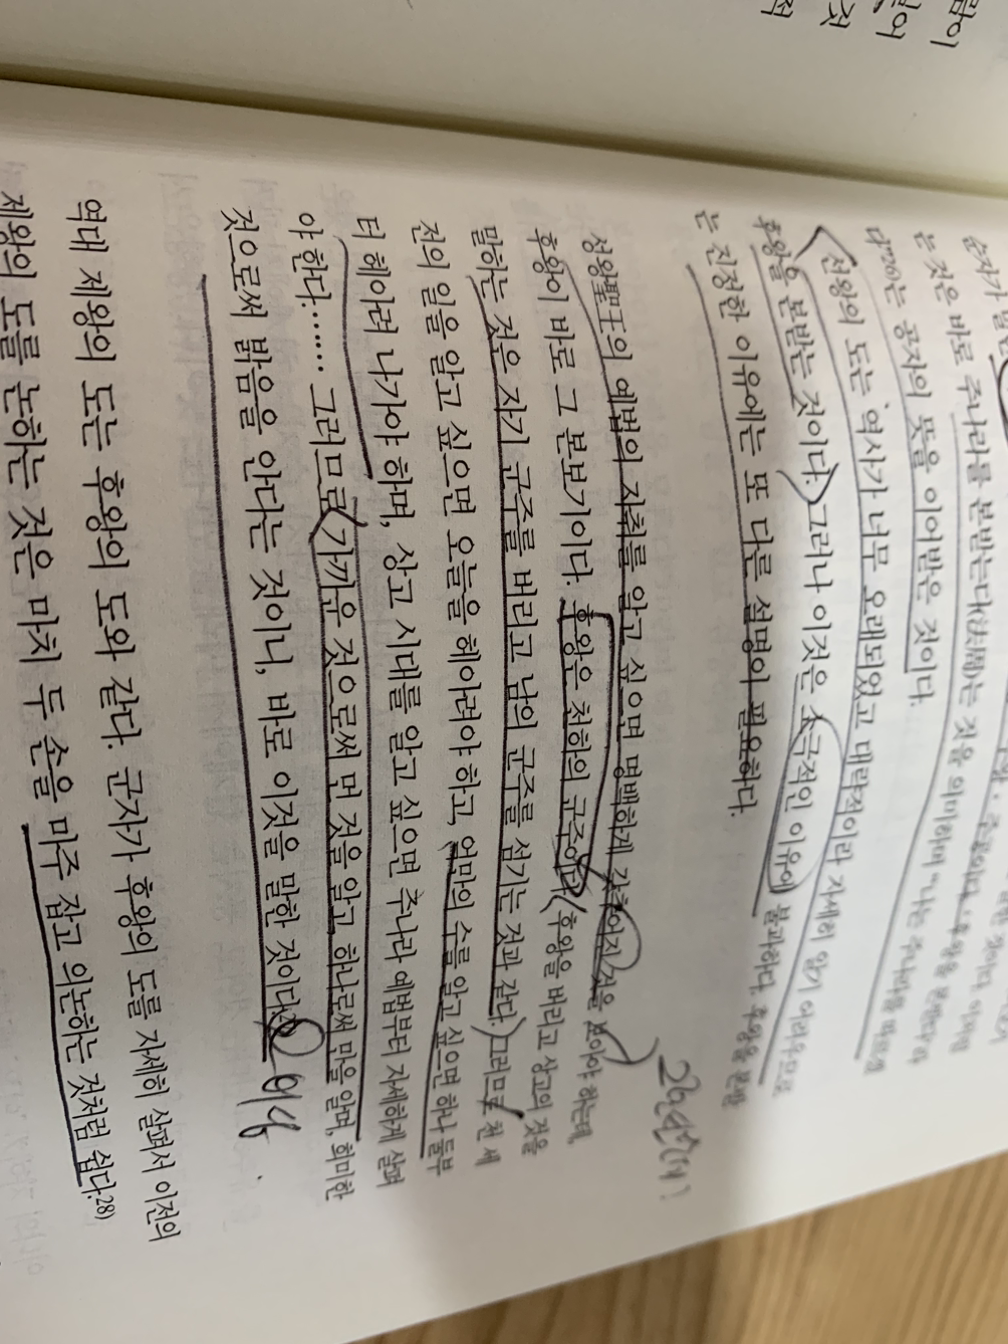 순자가 말한
는 것은 바로 주나라를 본받는다(法周)는 것을 의미하며 "나는 주나라를 따르겠
다"26)는 공자의 뜻을 이어받은 것이다.
선왕의 도는 '역사가 너무 오래되었고 대략적이라 자세히 알기 어려우므로
후왕을 본받는 것이다.' 그러나 이것은 소극적인 이유에 불과하다. 후왕을 본받
는 진정한 이유에는 또 다른 설명이 필요하다.
성왕聖王의 예법의 자취를 알고 싶으면 명백하게 갖추어진 것을 보아야 하는데,
후왕이 바로 그 본보기이다. 후왕은 천하의 군주이다. 후왕을 버리고 상고의 것을
말하는 것은 자기 군주를 버리고 남의 군주를 섬기는 것과 같다. 그러므로 천 세
전의 일을 알고 싶으면 오늘을 헤아려야 하고, 억만의 수를 알고 싶으면 하나 둘부
터 헤아려 나가야 하며, 상고 시대를 알고 싶으면 주나라 예법부터 자세하게 살펴
야 한다.…… 그러므로 가까운 것으로써 먼 것을 알고, 하나로써 만을 알며, 희미한
것으로써 밝음을 안다는 것이니, 바로 이것을 말한 것이다.
역대 제왕의 도는 후왕의 도와 같다. 군자가 후왕의 도를 자세히 살펴서 이전의
제왕의 도를 논하는 것은 마치 두 손을 마주 잡고 의논하는 것처럼 쉽다.28)